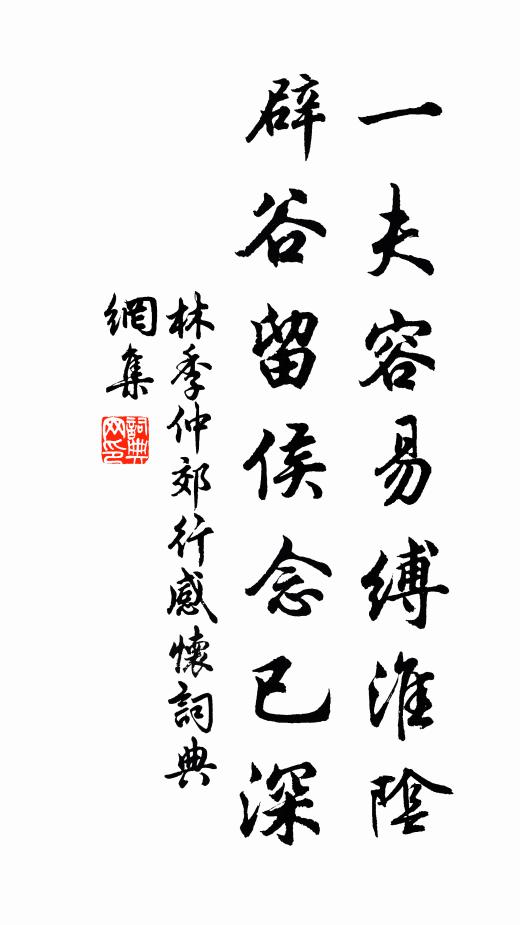 一夫容易縛淮陰
辟谷留侯念已深
林季仲郊行感懷詞典
網集
詞典
网印